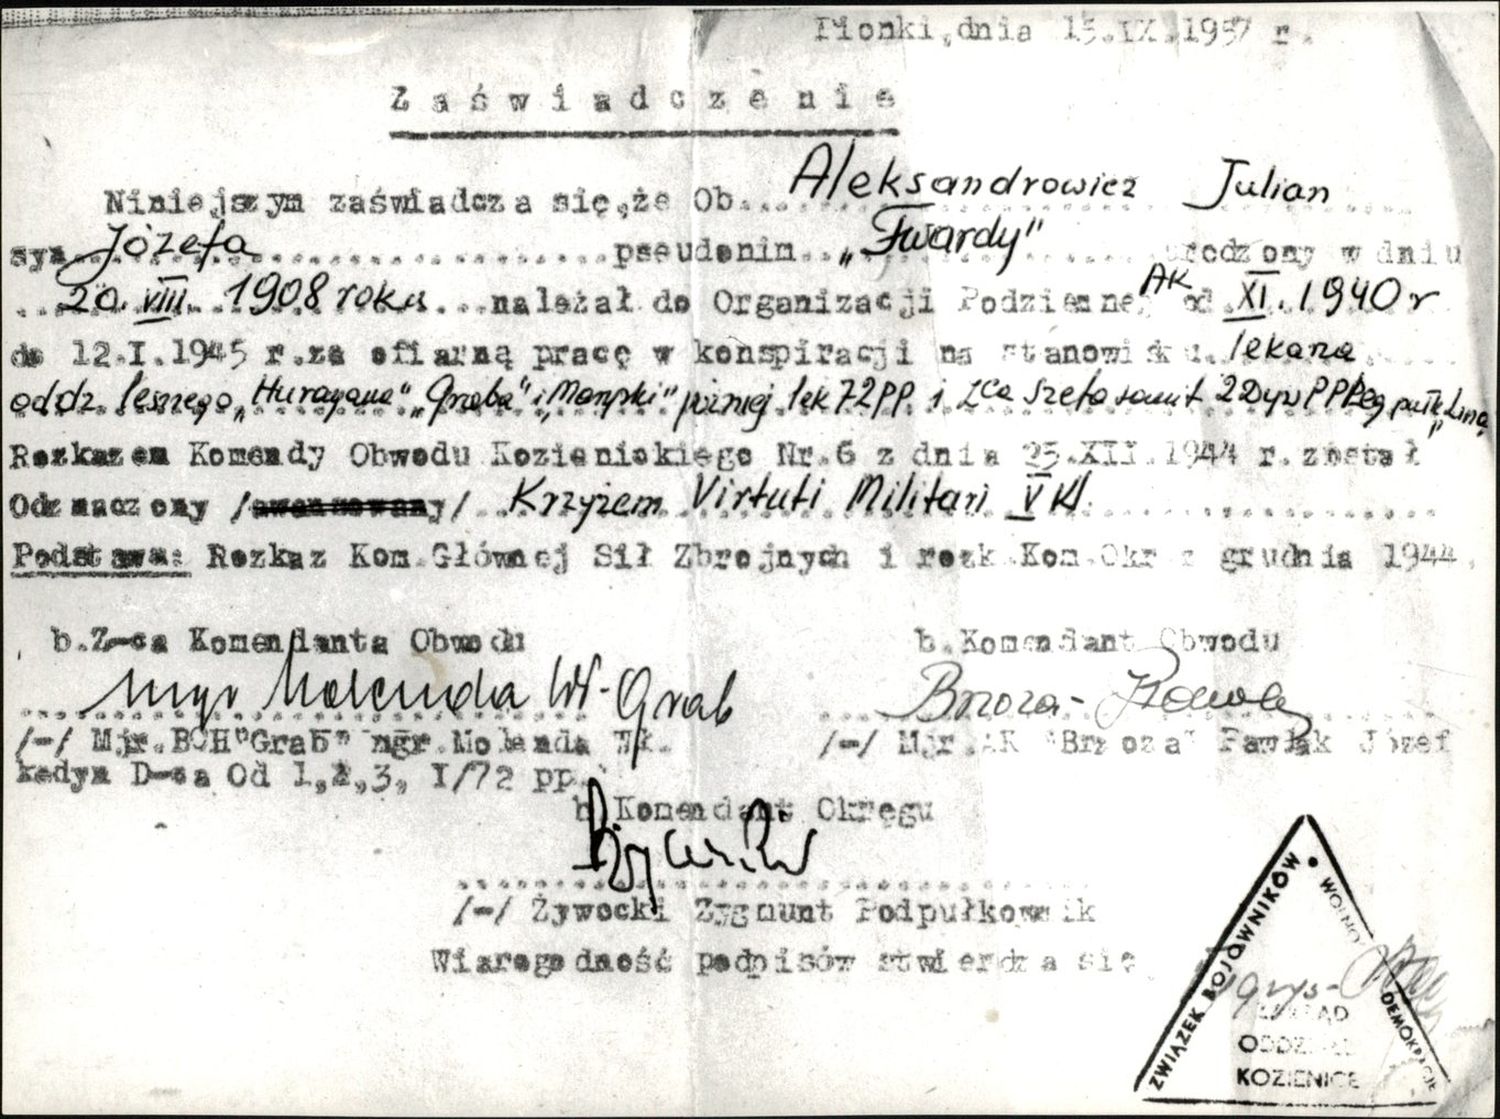 Pionki,dnia 15.IX.1957 r.
Zaświadczenie
Niniejszym zaświadcza się,że Ob. Aleksandrowicz Julian
syn Józefa pseudonim „Twardy" urodzony w dniu
20.VIII. 1908 roku należał do Organizacji Podziemnej AK od XI.1940 r
do 12.I.1945 r.za ofiarną pracę w konspiracji na stanowisku lekarza
oddz. leśnego „Huragana" „Graba" i „Maryśki" później lek 72PP i Zca Szefa sanit 2Dyw PPLeg
Rozkazem Komendy Obwodu Kozienickiego Nr.6 z dnia 25.XII.1944 r.został
Odznaczony /awansowany/ Krzyżem Virtuti Militari V Kl.
Podstawa: Rozkaz Kom.Głównej Sił Zbrojnych i rozk.Kom.Okr z grudnia 1944.
b.Z-ca Komendanta Obwodu b.Komendant Obwodu
mgr Molenda Wł-Grab Brzoza-
/-/ Mjr.BCH"Grab" mgr.Molenda Wł. /-/ Mjr.AK "Brzoza" Pawlak Józef
kedyn D-ca Od 1,2,3, I/72 pp.
b Komendant Okręgu
/-/ Żywocki Zygmunt Podpułkownik
Wiarogodność podpisów stwierdza się
ZWIĄZEK BOJOWNIKÓW • WOLNOŚĆ DEMOKRACJĘ
ZARZĄD
ODDZIAŁ
KOZIENICE